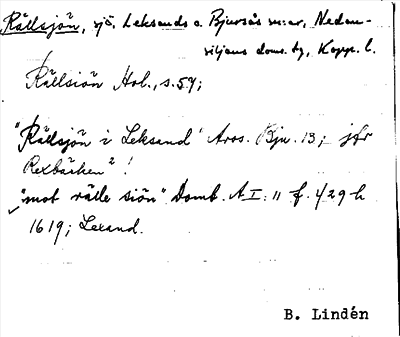 Rällsjön, sjö, Leksands o. Bjursås snr, Nedan-
siljans doms. tg, Kopp. l.
Rällsiön Hol., s. 59;
"Rällsjön i Leksand" Aros. Bju. 13; jfr
Rexbäcken²!
"mot rälle siön" Domb. A I: 11 f. 429 h
1619; Lexand.
B. Lindén